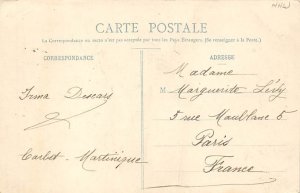 CARTE POSTALE
La Correspondance au recto n'est pas acceptée par tous les Pays Étrangers. (Se renseigner à la Poste.)
CORRESPONDANCE
ADRESSE
Madame
M Marguerite Lésy
5 rue Maublanc 5
Paris
France
Irma Descars
Carbet - Martinique